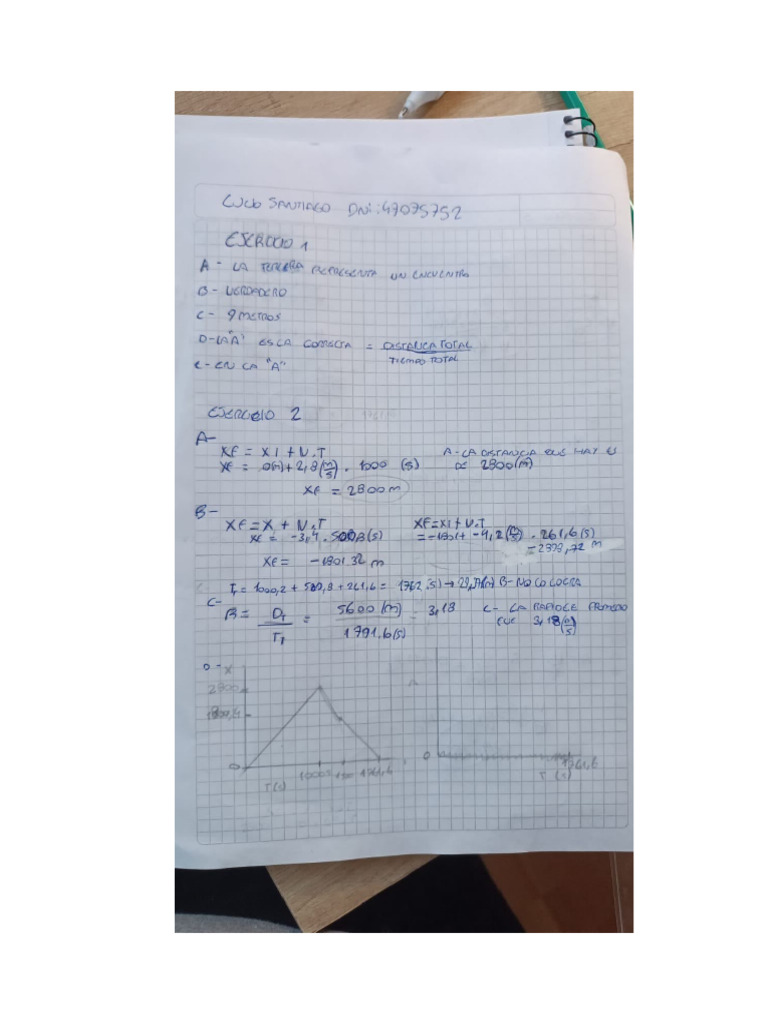 SANTIAGO DNI: 47075752
EJERCICIO 1
A - LA TERCERA REPRESENTA UN ENCUENTRO
B - VERDADERO
C - 9 METROS
D - LA "A" ES LA CORRECTA = DISTANCIA TOTAL / TIEMPO TOTAL
E - EN LA "A"
EJERCICIO 2
A-
XF = XI + V.T
XF = 0(m) + 2,8(m/s) . 1000 (s)
XF = 2800 m
A - LA DISTANCIA QUE HAY ES
2800(m)
B-
XF = X + V.T
XF = -3,4 . (s)
XF = m
XF = XI + V.T
= + -4,2(m/s) . 261,6(s)
= m
T = 1000,2 + + 261,6 = 1762 (s) → B - NO LO LOGRA
C-
R = DT / TT = 5600 (m) / 1791.6(s) = 3,18
C - LA RAPIDEZ PROMEDIO
FUE 3,18(m/s)
D - X
2800
0
T(s)
1000
1761,6
0
1761,6
T (s)